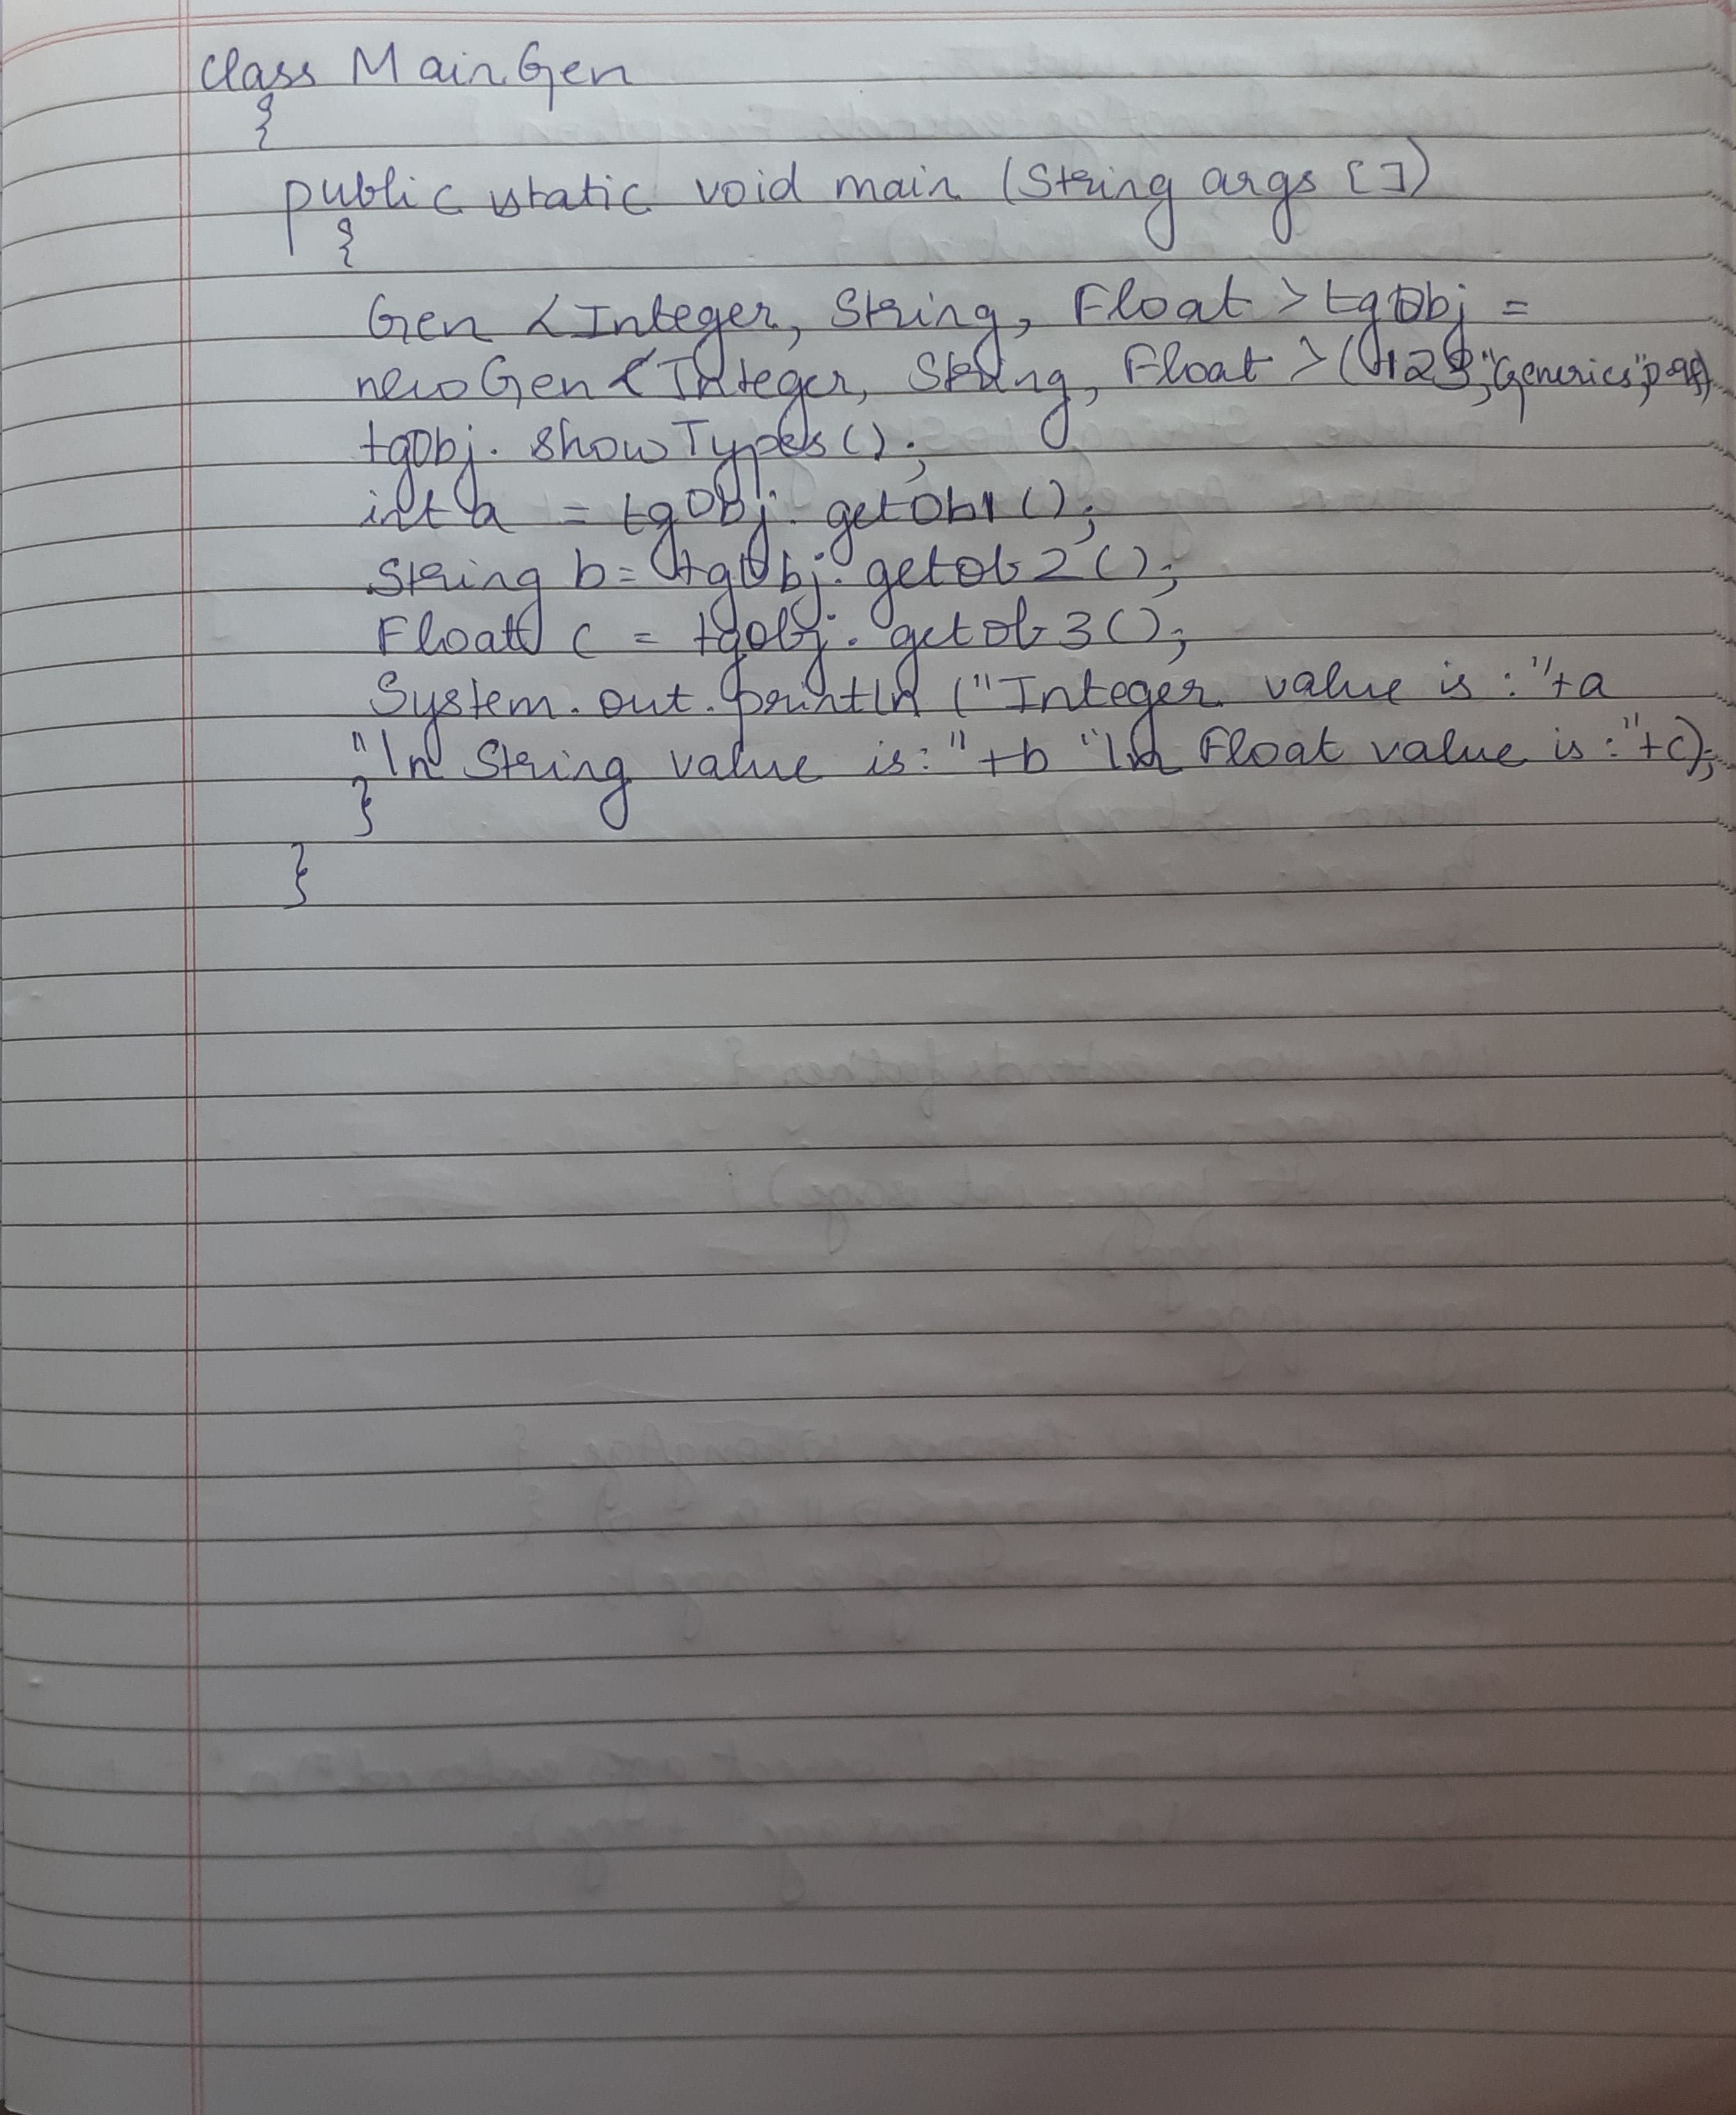 class MainGen
{
public static void main (String args [])
{
Gen <Integer, String, Float> tgObj =
new Gen <Integer, String, Float> (123, "Generics",
tgObj. showTypes();
int a = tgObj. getOb1();
String b = tgObj. getob2();
Float c = tgobj. getob3();
System.out.println ("Integer value is : "+a
"\n String value is: "+b "\n Float value is : "+c);
}
}